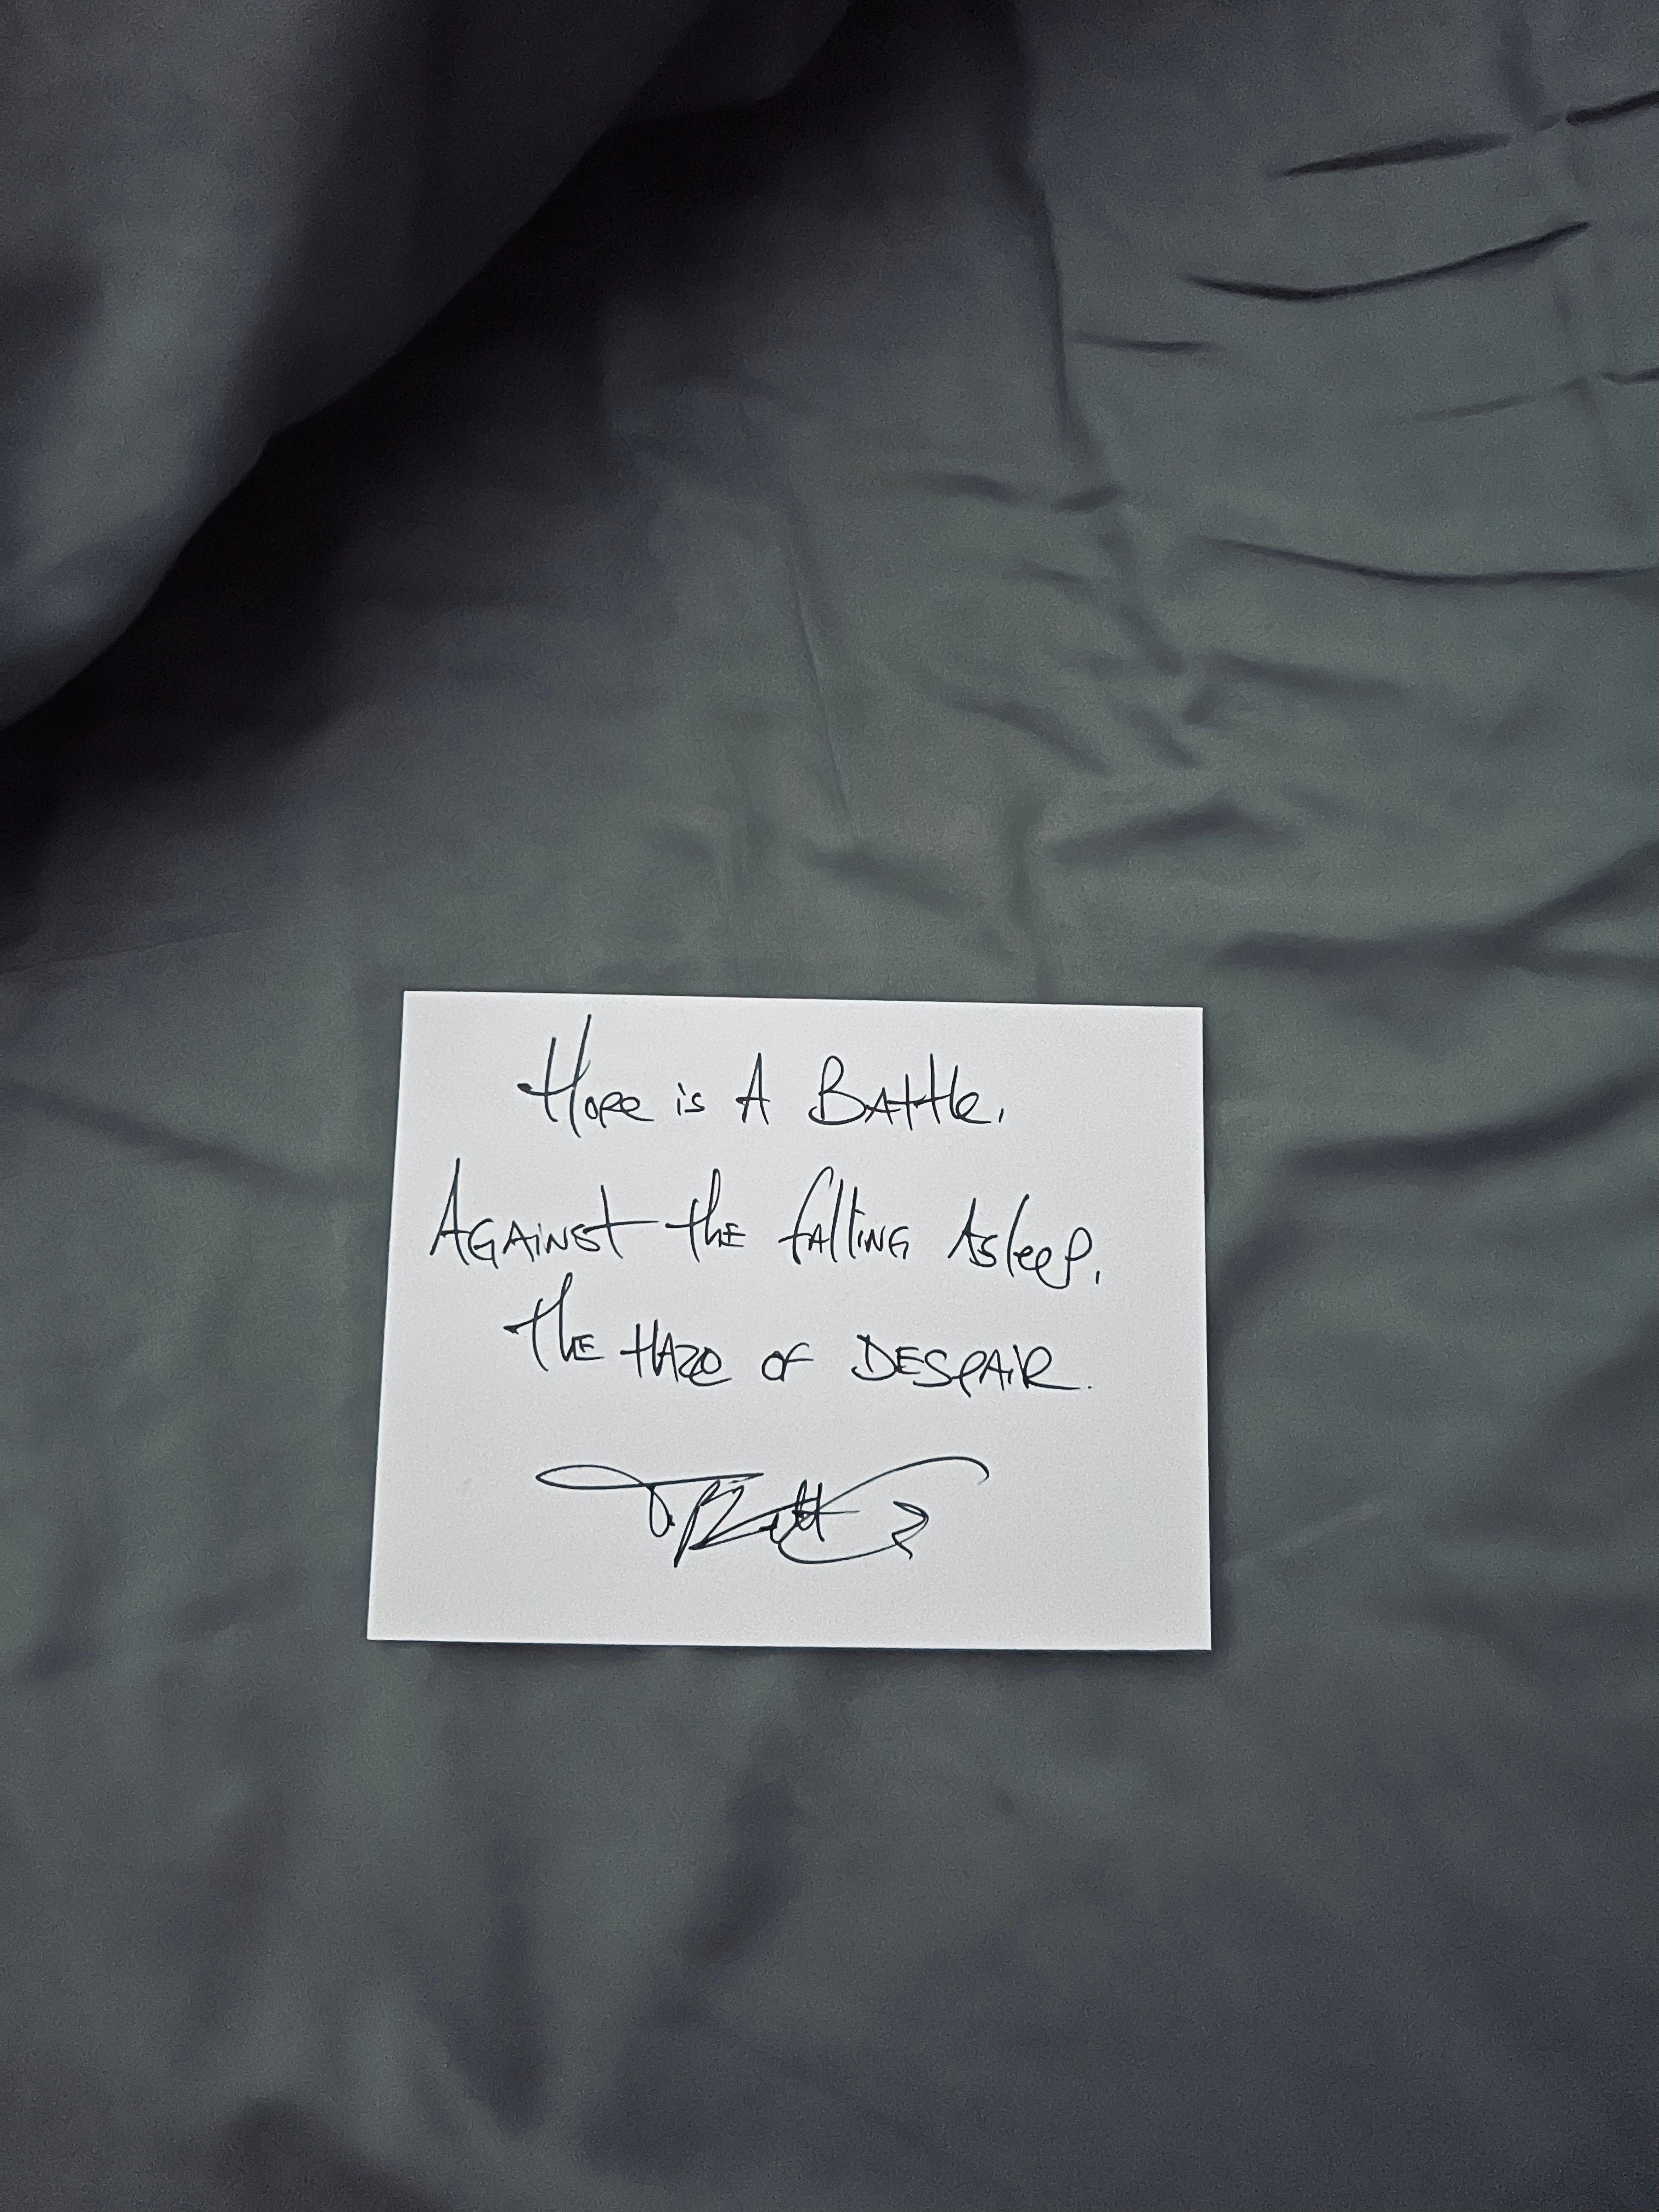 Hope is A Battle.
Against the falling Asleep.
the Haze of Despair.